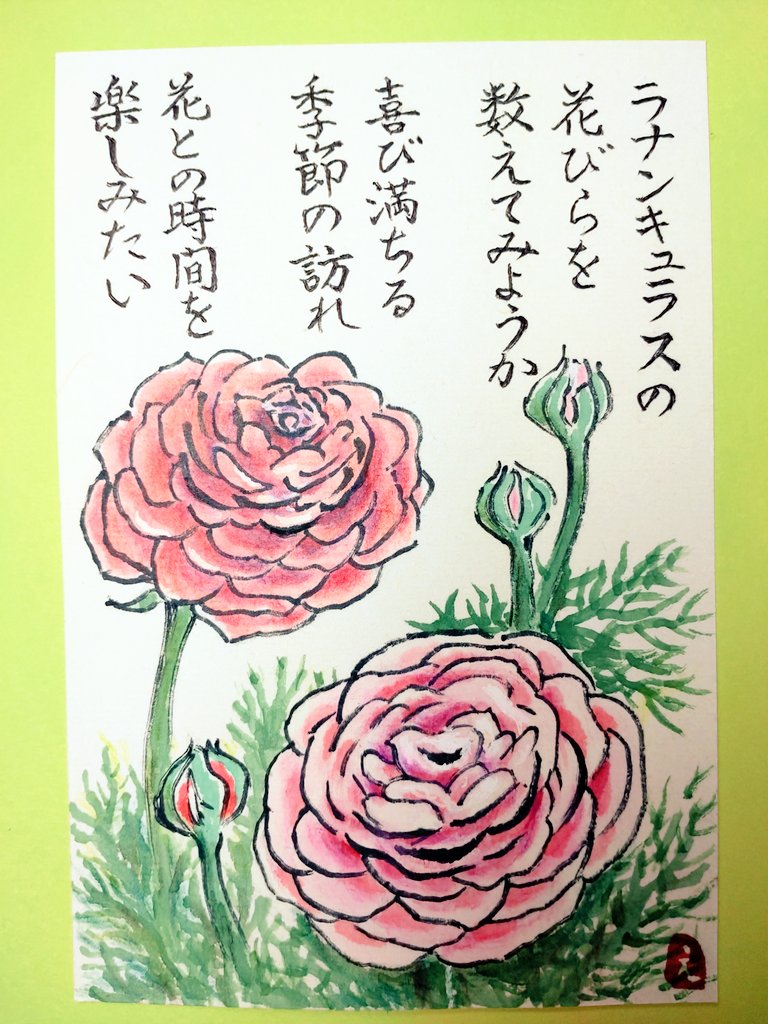 ラナンキュラスの
花びらを
数えてみようか
喜び満ちる
季節の訪れ
花との時間を
楽しみたい